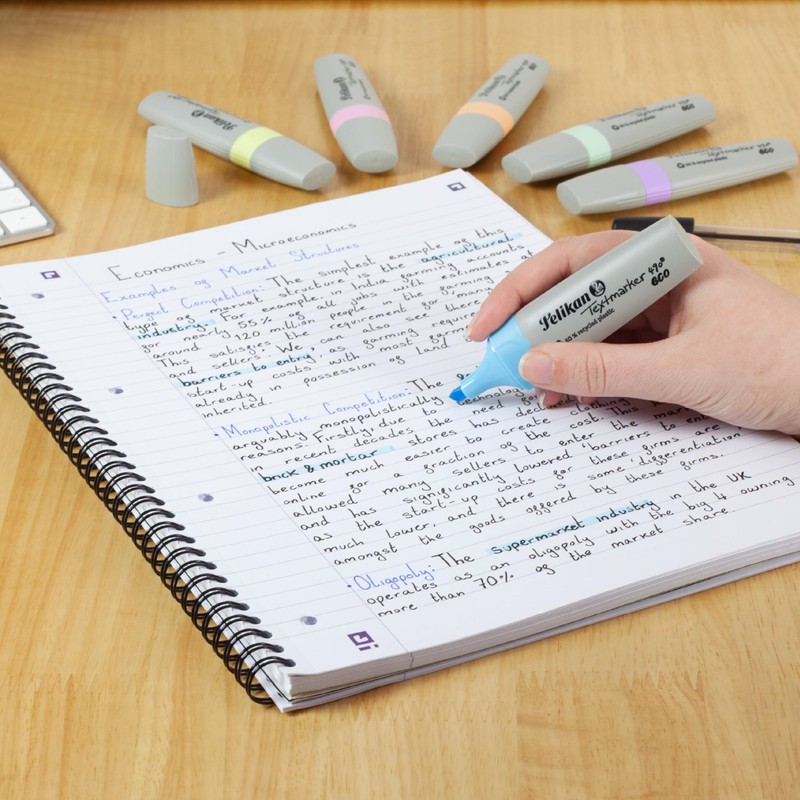 Pelikan
Textmarker 490
eco
Pelikan
Textmarker 490
eco
Textmarker 490
eco
Economics - Microeconomics
Examples of Market Structures
• Perfect Competition: The simplest example of this
type of market structure is the agricultural
industry. For example, India farming accounts
for nearly 55% of all jobs with estimates
around 120 million people in the farming
This satisfies the requirement for many
and sellers. We can also see there
barriers to entry, as farming requires
start-up costs with most farmers
already in possession of land
inherited.
• Monopolistic Competition: The
arguably monopolistically
reasons. Firstly, due to technology
in recent decades the need for
brick & mortar stores has declined
become much easier to create clothing
online for a fraction of the cost. This
allowed many sellers to enter the market
and has significantly lowered barriers to entry
as the start-up costs for these firms are
much lower, and there is some differentiation
amongst the goods offered by these firms.
• Oligopoly: The supermarket industry in the UK
operates as an oligopoly with the big 4 owning
more than 70% of the market share.
Pelikan
Textmarker 490
eco
80% recycled plastic